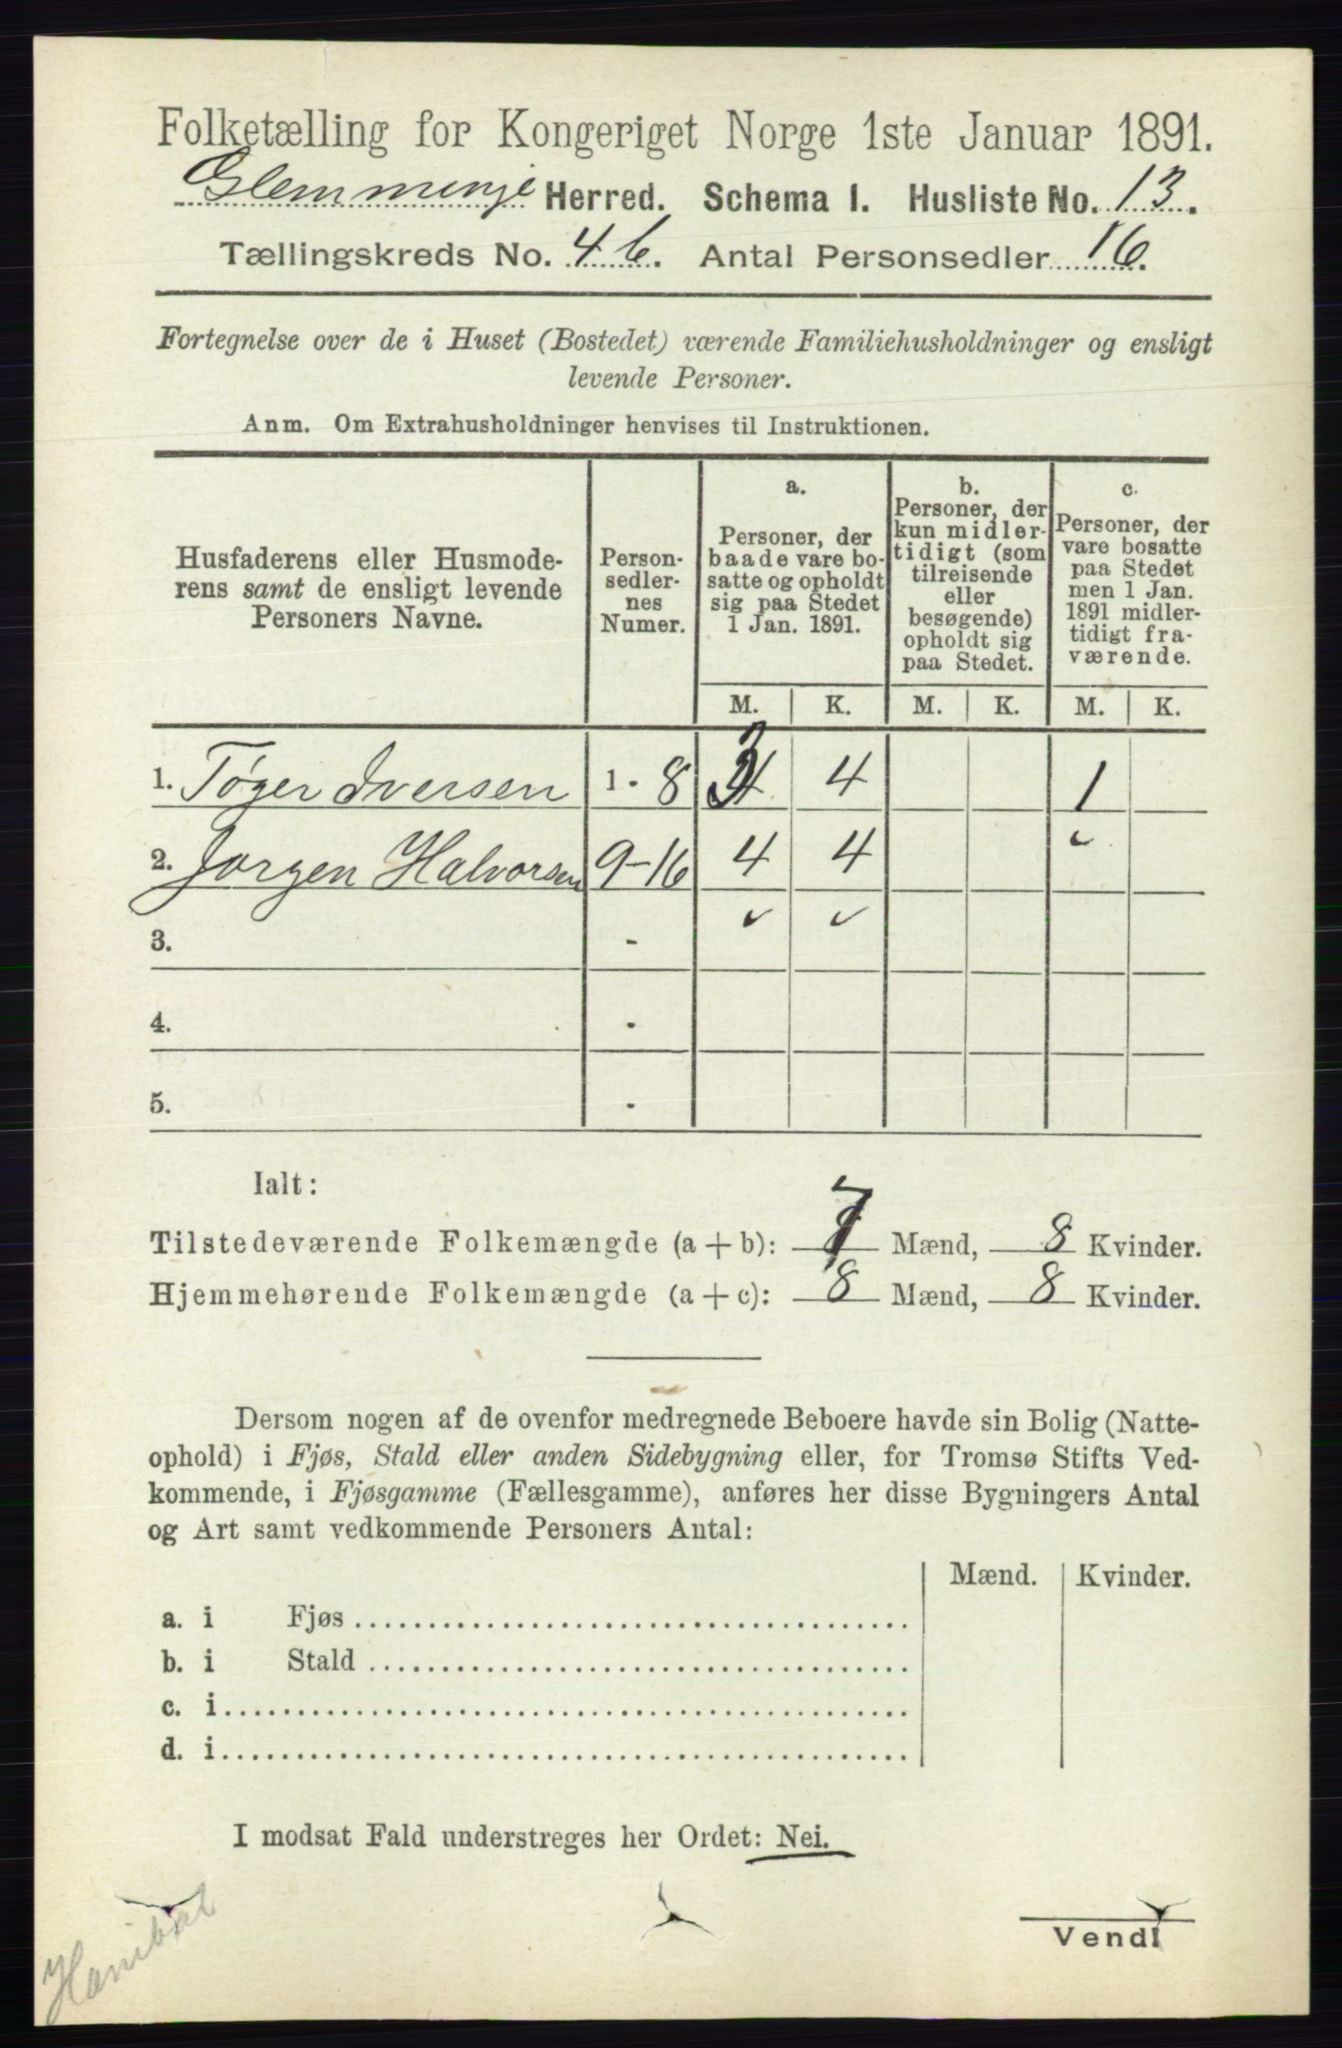 Folketælling for Kongeriget Norge 1ste Januar 1891.
Glemminge Herred. Schema I. Husliste No. 13.
Tællingskreds No. 46. Antal Personsedler 16.
Fortegnelse over de i Huset (Bostedet) værende Familiehusholdninger og ensligt
levende Personer.
Anm. Om Extrahusholdninger henvises til Instruktionen.
Husfaderens eller Husmode-
rens samt de ensligt levende
Personers Navne.
Person-
sedler-
nes
Numer.
a.
Personer, der
baade vare bo-
satte og opholdt
sig paa Stedet
1 Jan. 1891.
b.
Personer, der
kun midler-
tidigt (som
tilreisende
eller
besøgende)
opholdt sig
paa Stedet.
c.
Personer, der
vare bosatte
paa Stedet
men 1 Jan.
1891 midler-
tidigt fra-
værende.
M. K. M. K. M. K.
1. Tøger Iversen 1 - 8 3 4 1
2. Jørgen Halvorsen 9-16 4 4
3. -
4. -
5. -
Ialt:
Tilstedeværende Folkemængde (a + b): 7 Mænd, 8 Kvinder.
Hjemmehørende Folkemængde (a + c): 8 Mænd, 8 Kvinder.
Dersom nogen af de ovenfor medregnede Beboere havde sin Bolig (Natte-
ophold) i Fjøs, Stald eller anden Sidebygning eller, for Tromsø Stifts Ved-
kommende, i Fjøsgamme (Fællesgamme), anføres her disse Bygningers Antal
og Art samt vedkommende Personers Antal:
Mænd. Kvinder.
a. i Fjøs
b. i Stald
c. i
d. i
I modsat Fald understreges her Ordet: Nei.
Hanibal
Vend!